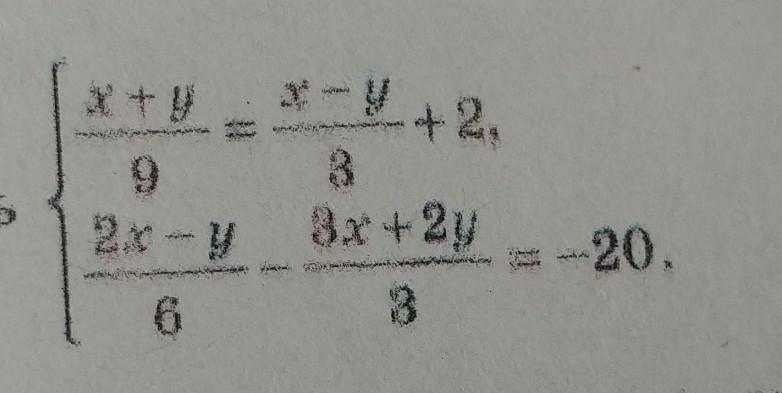 (x + y)/9 = (x − y)/3 + 2,
(2x − y)/6 − (3x + 2y)/3 = −20.